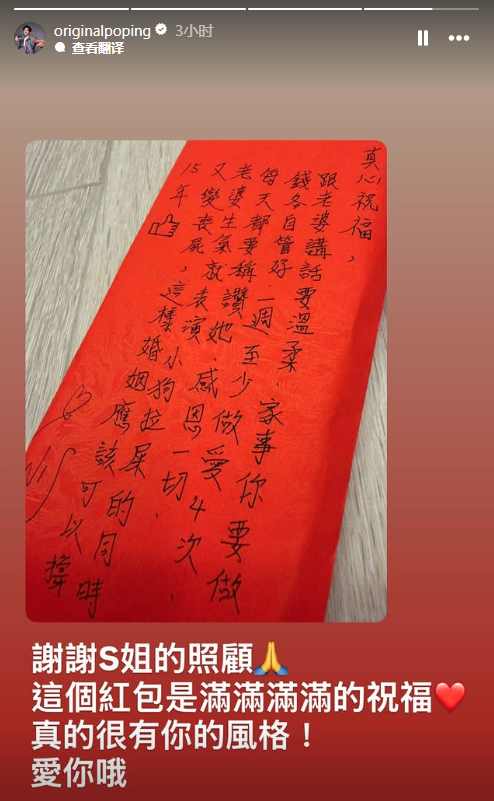 originalpoping 3小时
查看翻译
真心祝福，
跟老婆講話要溫柔．家事你要做
錢各自管好．一週至少做愛4次．
每天都要稱讚她．感恩一切．
老婆生氣就表演小狗拉屎的同時
又變喪屍，這樣婚姻應該可以撐
15年
謝謝S姐的照顧🙏
這個紅包是滿滿滿滿的祝福❤️
真的很有你的風格！
愛你哦